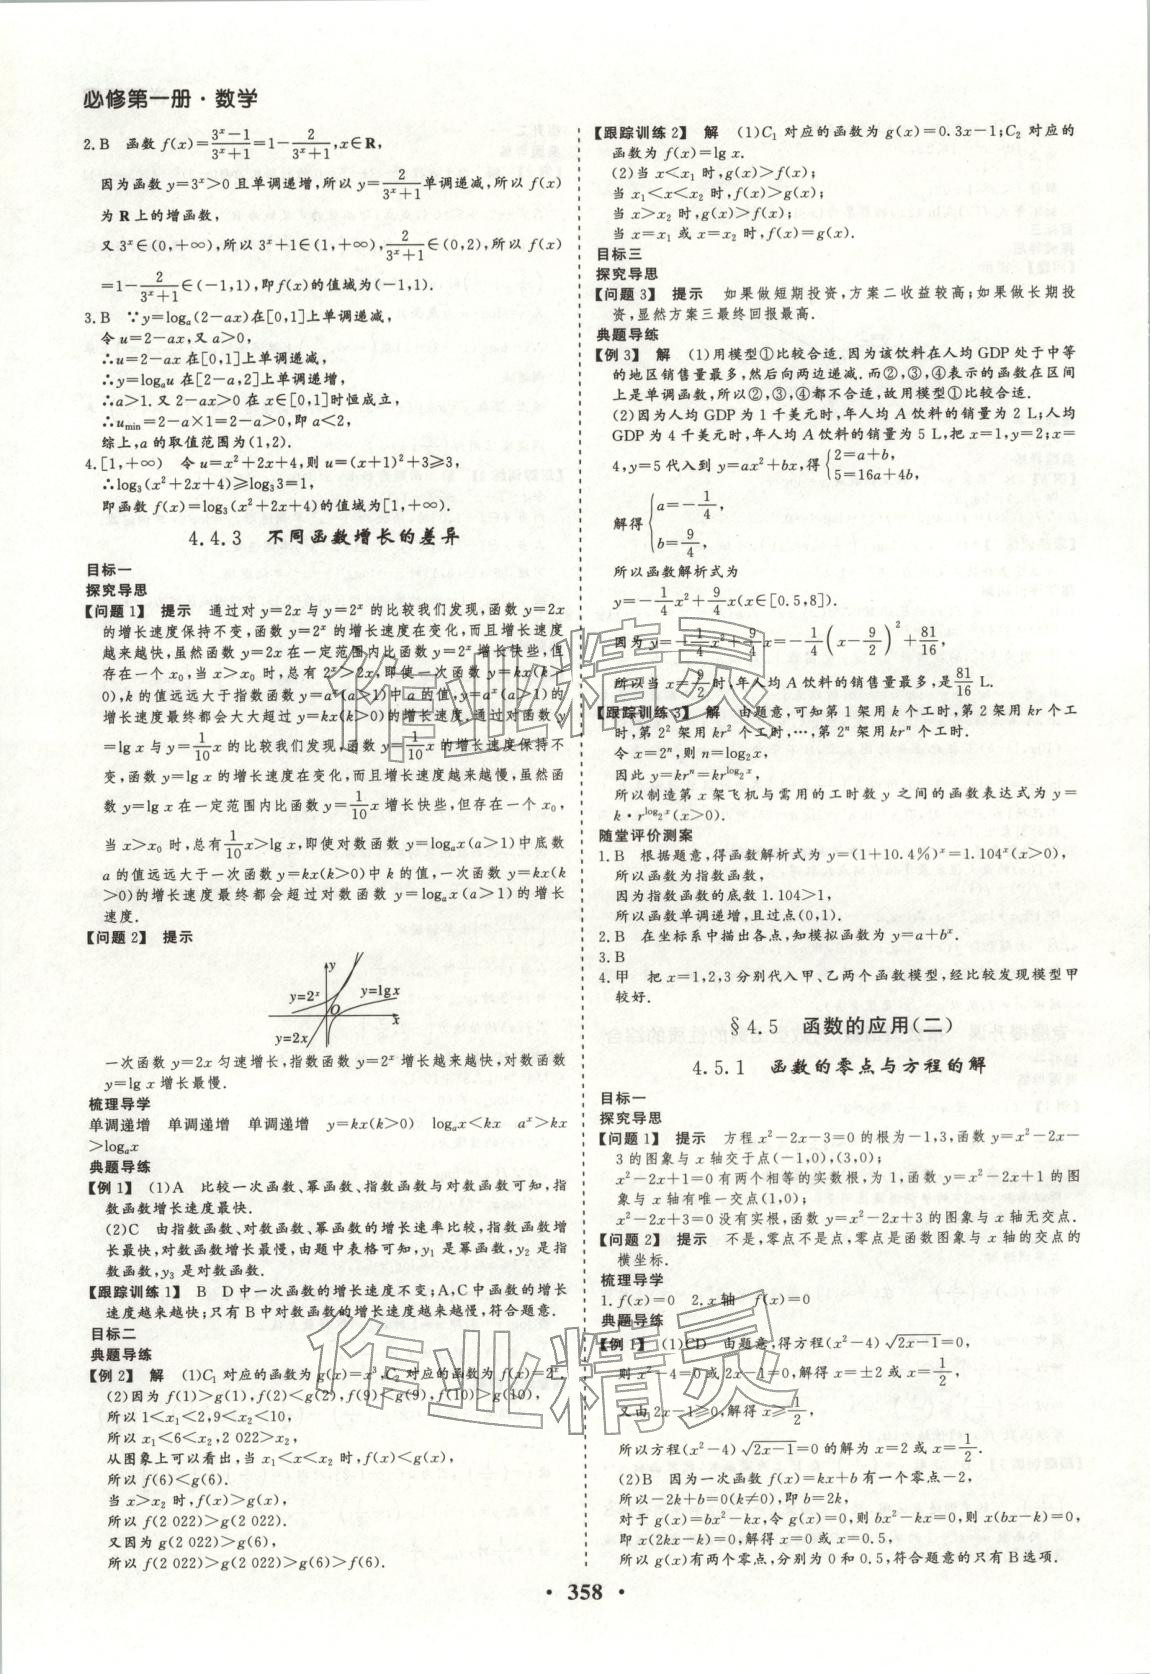 必修第一册·数学
2.B 函数 f(x)=(3^x-1)/(3^x+1)=1-2/(3^x+1),x∈R,
因为函数 y=3^x>0 且单调递增,所以 y=2/(3^x+1)单调递减,所以 f(x)
为 R 上的增函数,
又 3^x∈(0,+∞),所以 3^x+1∈(1,+∞),2/(3^x+1)∈(0,2),所以 f(x)
=1-2/(3^x+1)∈(-1,1),即 f(x)的值域为(-1,1).
3.B ∵y=log_a(2-ax)在[0,1]上单调递减,
令 u=2-ax,又 a>0,
∴u=2-ax 在[0,1]上单调递减,
∴y=log_a u 在[2-a,2]上单调递增,
∴a>1.又 2-ax>0 在 x∈[0,1]时恒成立,
∴u_min=2-a×1=2-a>0,即 a<2,
综上,a 的取值范围为(1,2).
4.[1,+∞) 令 u=x²+2x+4,则 u=(x+1)²+3≥3,
∴log₃(x²+2x+4)≥log₃3=1,
即函数 f(x)=log₃(x²+2x+4)的值域为[1,+∞).
4.4.3 不同函数增长的差异
目标一
探究导思
【问题1】 提示 通过对 y=2x 与 y=2^x 的比较我们发现,函数 y=2x
的增长速度保持不变,函数 y=2^x 的增长速度在变化,而且增长速度
越来越快,虽然函数 y=2x 在一定范围内比函数 y=2^x 增长快些,但
存在一个 x₀,当 x>x₀ 时,总有 2^x>2x,即使一次函数 y=kx(k>
0),k 的值远远大于指数函数 y=a^x(a>1)中 a 的值,y=a^x(a>1)的
增长速度最终都会大大超过 y=kx(k>0)的增长速度,通过对函数 y
=lg x 与 y=1/10 x 的比较我们发现,函数 y=1/10 x 的增长速度保持不
变,函数 y=lg x 的增长速度在变化,而且增长速度越来越慢,虽然函
数 y=lg x 在一定范围内比函数 y=1/10 x 增长快些,但存在一个 x₀,
当 x>x₀ 时,总有1/10 x>lg x,即使对数函数 y=log_a x(a>1)中底数
a 的值远远大于一次函数 y=kx(k>0)中 k 的值,一次函数 y=kx(k
>0)的增长速度最终都会超过对数函数 y=log_a x(a>1)的增长
速度.
【问题2】 提示
y
y=2^x
y=lg x
O
x
y=2x
一次函数 y=2x 匀速增长,指数函数 y=2^x 增长越来越快,对数函数
y=lg x 增长最慢.
梳理导学
单调递增 单调递增 单调递增 y=kx(k>0) log_a x<kx a^x>kx
>log_a x
典题导练
【例1】 (1)A 比较一次函数、幂函数、指数函数与对数函数可知,指
数函数增长速度最快.
(2)C 由指数函数、对数函数、幂函数的增长速率比较,指数函数增
长最快,对数函数增长最慢,由题中表格可知,y₁ 是幂函数,y₂ 是指
数函数,y₃ 是对数函数.
【跟踪训练1】 B D 中一次函数的增长速度不变;A,C 中函数的增长
速度越来越快;只有 B 中对数函数的增长速度越来越慢,符合题意.
目标二
典题导练
【例2】 解 (1)C₁ 对应的函数为 g(x)=x³,C₂ 对应的函数为 f(x)=2^x.
(2)因为 f(1)>g(1),f(2)<g(2),f(9)<g(9),f(10)>g(10),
所以 1<x₁<2,9<x₂<10,
所以 x₁<6<x₂,2 022>x₂,
从图象上可以看出,当 x₁<x<x₂ 时,f(x)<g(x),
所以 f(6)<g(6).
当 x>x₂ 时,f(x)>g(x),
所以 f(2 022)>g(2 022).
又因为 g(2 022)>g(6),
所以 f(2 022)>g(2 022)>g(6)>f(6).
【跟踪训练2】 解 (1)C₁ 对应的函数为 g(x)=0.3x-1;C₂ 对应的
函数为 f(x)=lg x.
(2)当 x<x₁ 时,g(x)>f(x);
当 x₁<x<x₂ 时,f(x)>g(x);
当 x>x₂ 时,g(x)>f(x);
当 x=x₁ 或 x=x₂ 时,f(x)=g(x).
目标三
探究导思
【问题3】 提示 如果做短期投资,方案二收益较高;如果做长期投
资,显然方案三最终回报最高.
典题导练
【例3】 解 (1)用模型①比较合适.因为该饮料在人均 GDP 处于中等
的地区销售量最多,然后向两边递减.而②,③,④表示的函数在区间
上是单调函数,所以②,③,④都不合适,故用模型①比较合适.
(2)因为人均 GDP 为 1 千美元时,年人均 A 饮料的销量为 2 L;人均
GDP 为 4 千美元时,年人均 A 饮料的销量为 5 L,把 x=1,y=2;x=
4,y=5 代入到 y=ax²+bx,得{2=a+b, 5=16a+4b,
解得{a=-1/4, b=9/4,
所以函数解析式为
y=-1/4 x²+9/4 x(x∈[0.5,8]).
因为 y=-1/4 x²+9/4 x=-1/4(x-9/2)²+81/16,
所以当 x=9/2时,年人均 A 饮料的销售量最多,是81/16 L.
【跟踪训练3】 解 由题意,可知第 1 架用 k 个工时,第 2 架用 kr 个工
时,第 2² 架用 kr² 个工时,…,第 2^n 架用 kr^n 个工时,
令 x=2^n,则 n=log₂x,
因此 y=kr^n=kr^(log₂x),
所以制造第 x 架飞机与需用的工时数 y 之间的函数表达式为 y=
k·r^(log₂x)(x>0).
随堂评价测案
1.B 根据题意,得函数解析式为 y=(1+10.4%)^x=1.104^x(x>0),
所以函数为指数函数,
因为指数函数的底数 1.104>1,
所以函数单调递增,且过点(0,1).
2.B 在坐标系中描出各点,知模拟函数为 y=a+b^x.
3.B
4.甲 把 x=1,2,3 分别代入甲、乙两个函数模型,经比较发现模型甲
较好.
§4.5 函数的应用(二)
4.5.1 函数的零点与方程的解
目标一
探究导思
【问题1】 提示 方程 x²-2x-3=0 的根为-1,3,函数 y=x²-2x-
3 的图象与 x 轴交于点(-1,0),(3,0);
x²-2x+1=0 有两个相等的实数根,为 1,函数 y=x²-2x+1 的图
象与 x 轴有唯一交点(1,0);
x²-2x+3=0 没有实根,函数 y=x²-2x+3 的图象与 x 轴无交点.
【问题2】 提示 不是,零点不是点,零点是函数图象与 x 轴的交点的
横坐标.
梳理导学
1.f(x)=0 2.x 轴 f(x)=0
典题导练
【例1】 (1)CD 由题意,得方程(x²-4)√(2x-1)=0,
则 x²-4=0 或 2x-1=0,解得 x=±2 或 x=1/2,
又由 2x-1≥0,解得 x≥1/2,
所以方程(x²-4)√(2x-1)=0 的解为 x=2 或 x=1/2.
(2)B 因为一次函数 f(x)=kx+b 有一个零点-2,
所以-2k+b=0(k≠0),即 b=2k,
对于 g(x)=bx²-kx,令 g(x)=0,则 bx²-kx=0,则 x(bx-k)=0,
即 x(2kx-k)=0,解得 x=0 或 x=0.5,
所以 g(x)有两个零点,分别为 0 和 0.5,符合题意的只有 B 选项.
· 358 ·
作业精灵
作业精灵